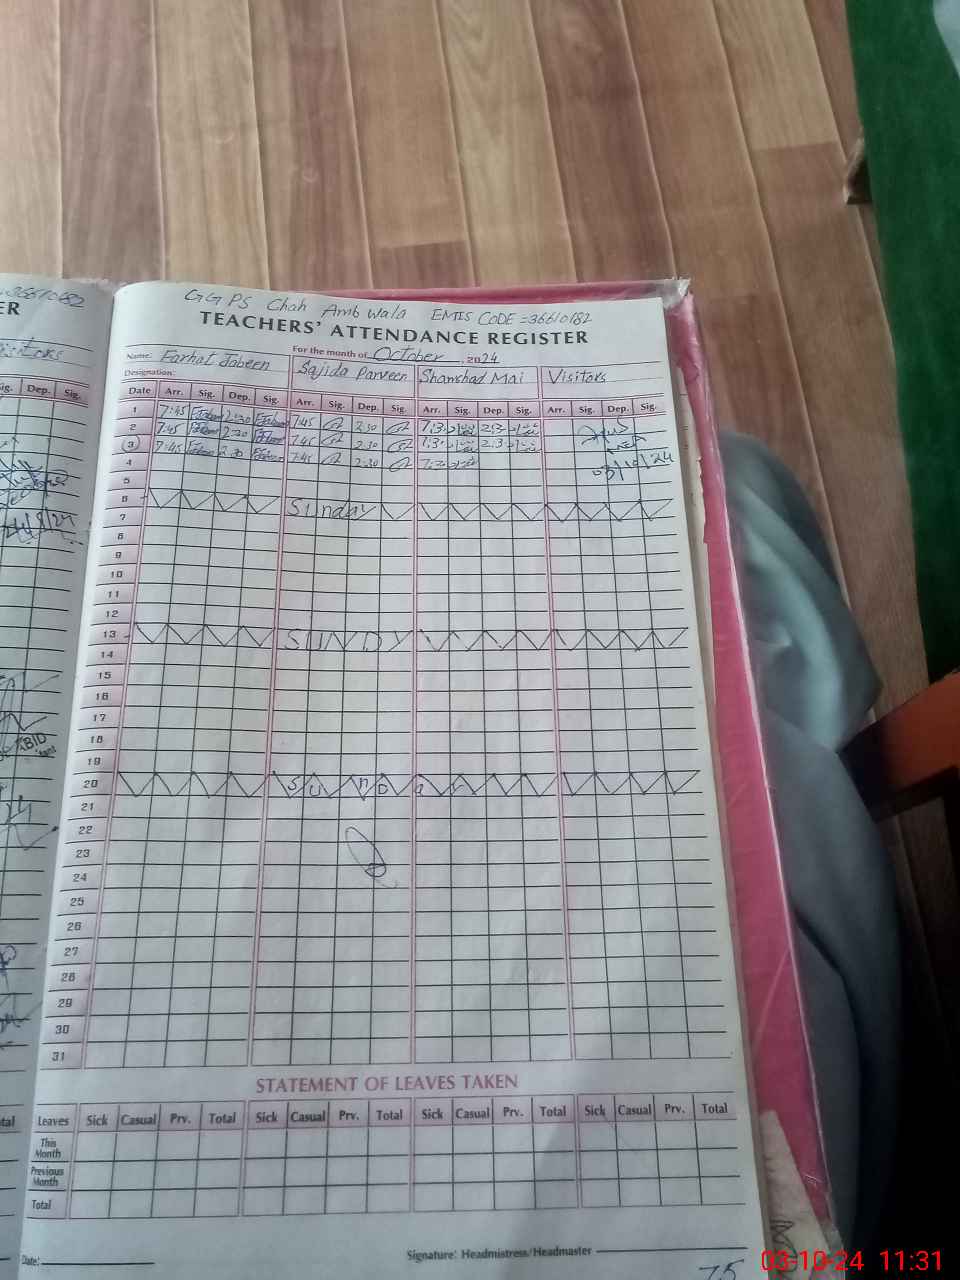 GGPS Chah Amb Wala EMIS CODE = 36610182
TEACHERS' ATTENDANCE REGISTER
For the month of October, 2024
Name: Farhat Jabeen Sajida Parveen Shamshad Mai Visitors
Designation:
Date Arr. Sig. Dep. Sig. Arr. Sig. Dep. Sig. Arr. Sig. Dep. Sig. Arr. Sig. Dep. Sig.
1 7:45 2:30 7:45 2:30 7:3 2:3
2 7:45 2:30 7:45 2:30 7:3 2:3
3 7:45 2:30 7:45 2:30 7:3
4 03/10/24
5
6 Sunday
7
8
9
10
11
12
13 SUNDY
14
15
16
17
18
19
20 SunDay
21
22
23
24
25
26
27
28
29
30
31
STATEMENT OF LEAVES TAKEN
Leaves Sick Casual Prv. Total Sick Casual Prv. Total Sick Casual Prv. Total Sick Casual Prv. Total
This
Month
Previous
Month
Total
Date:
Signature: Headmistress/Headmaster
75
03-10-24 11:31